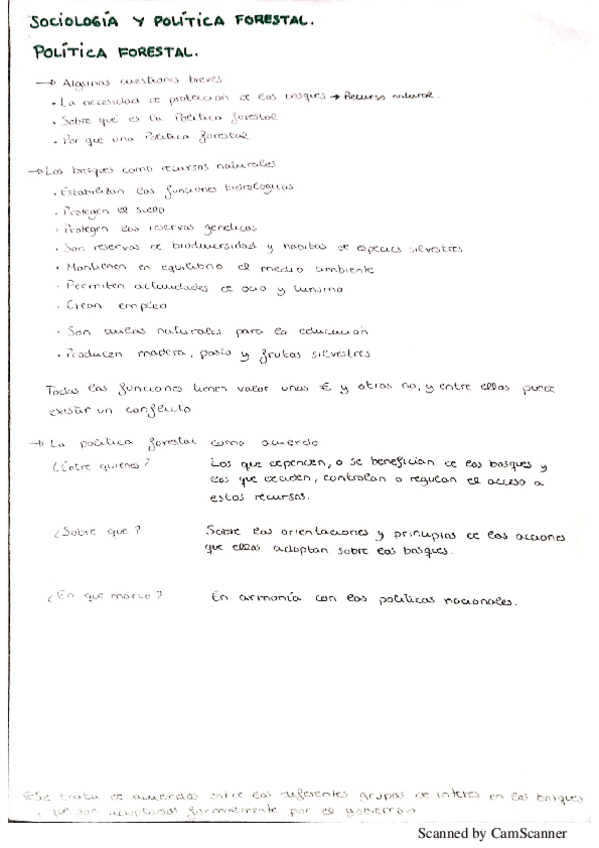 SOCIOLOGÍA Y POLÍTICA FORESTAL.
POLÍTICA FORESTAL.
→ Algunas cuestiones breves
· La necesidad de protección de los bosques → Recurso natural.
· Sobre qué es la Política forestal
· Por que una Política forestal
→ Los bosques como recursos naturales
· Estabilizan las funciones hidrológicas
· Protegen el suelo
· Protegen las reservas genéticas
· Son reservas de biodiversidad y habitas de especies silvestres
· Mantienen en equilibrio el medio ambiente
· Permiten actividades de ocio y turismo
· Crean empleo
· Son aulas naturales para la educación
· Producen madera, pasto y frutos silvestres
Todas las funciones tienen valor unas € y otras no, y entre ellas puede
existir un conflicto
→ La política forestal como acuerdo
¿Entre quienes? Los que dependen, o se benefician de los bosques y
los que deciden, controlan o regulan el acceso a
estos recursos.
¿Sobre que? Sobre las orientaciones y principios de las acciones
que ellos adoptan sobre los bosques.
¿En que marco? En armonía con las políticas nacionales.
Se trata de acuerdos entre los diferentes grupos de interés en los bosques
y que son adoptados formalmente por el gobierno»
Scanned by CamScanner